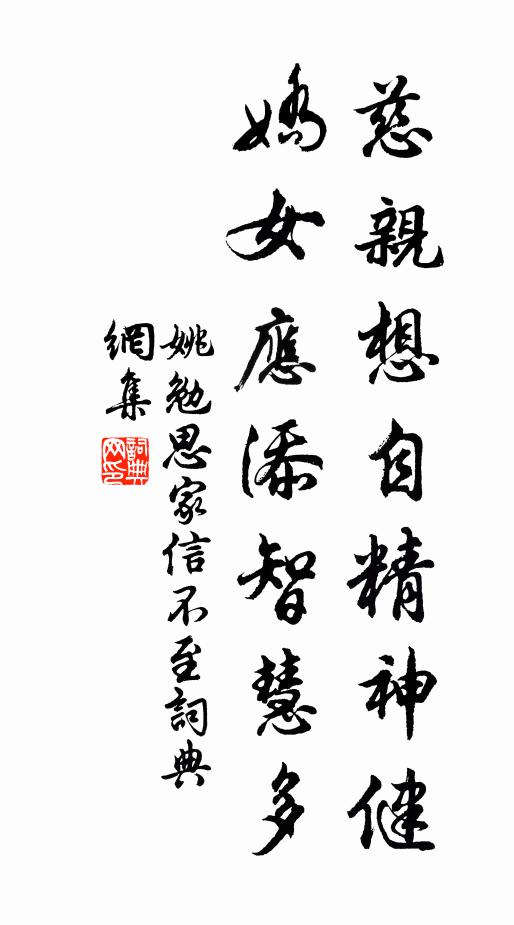 慈親想自精神健
嬌女應添智慧多
姚勉思家信不至詞典
網集
詞典網印